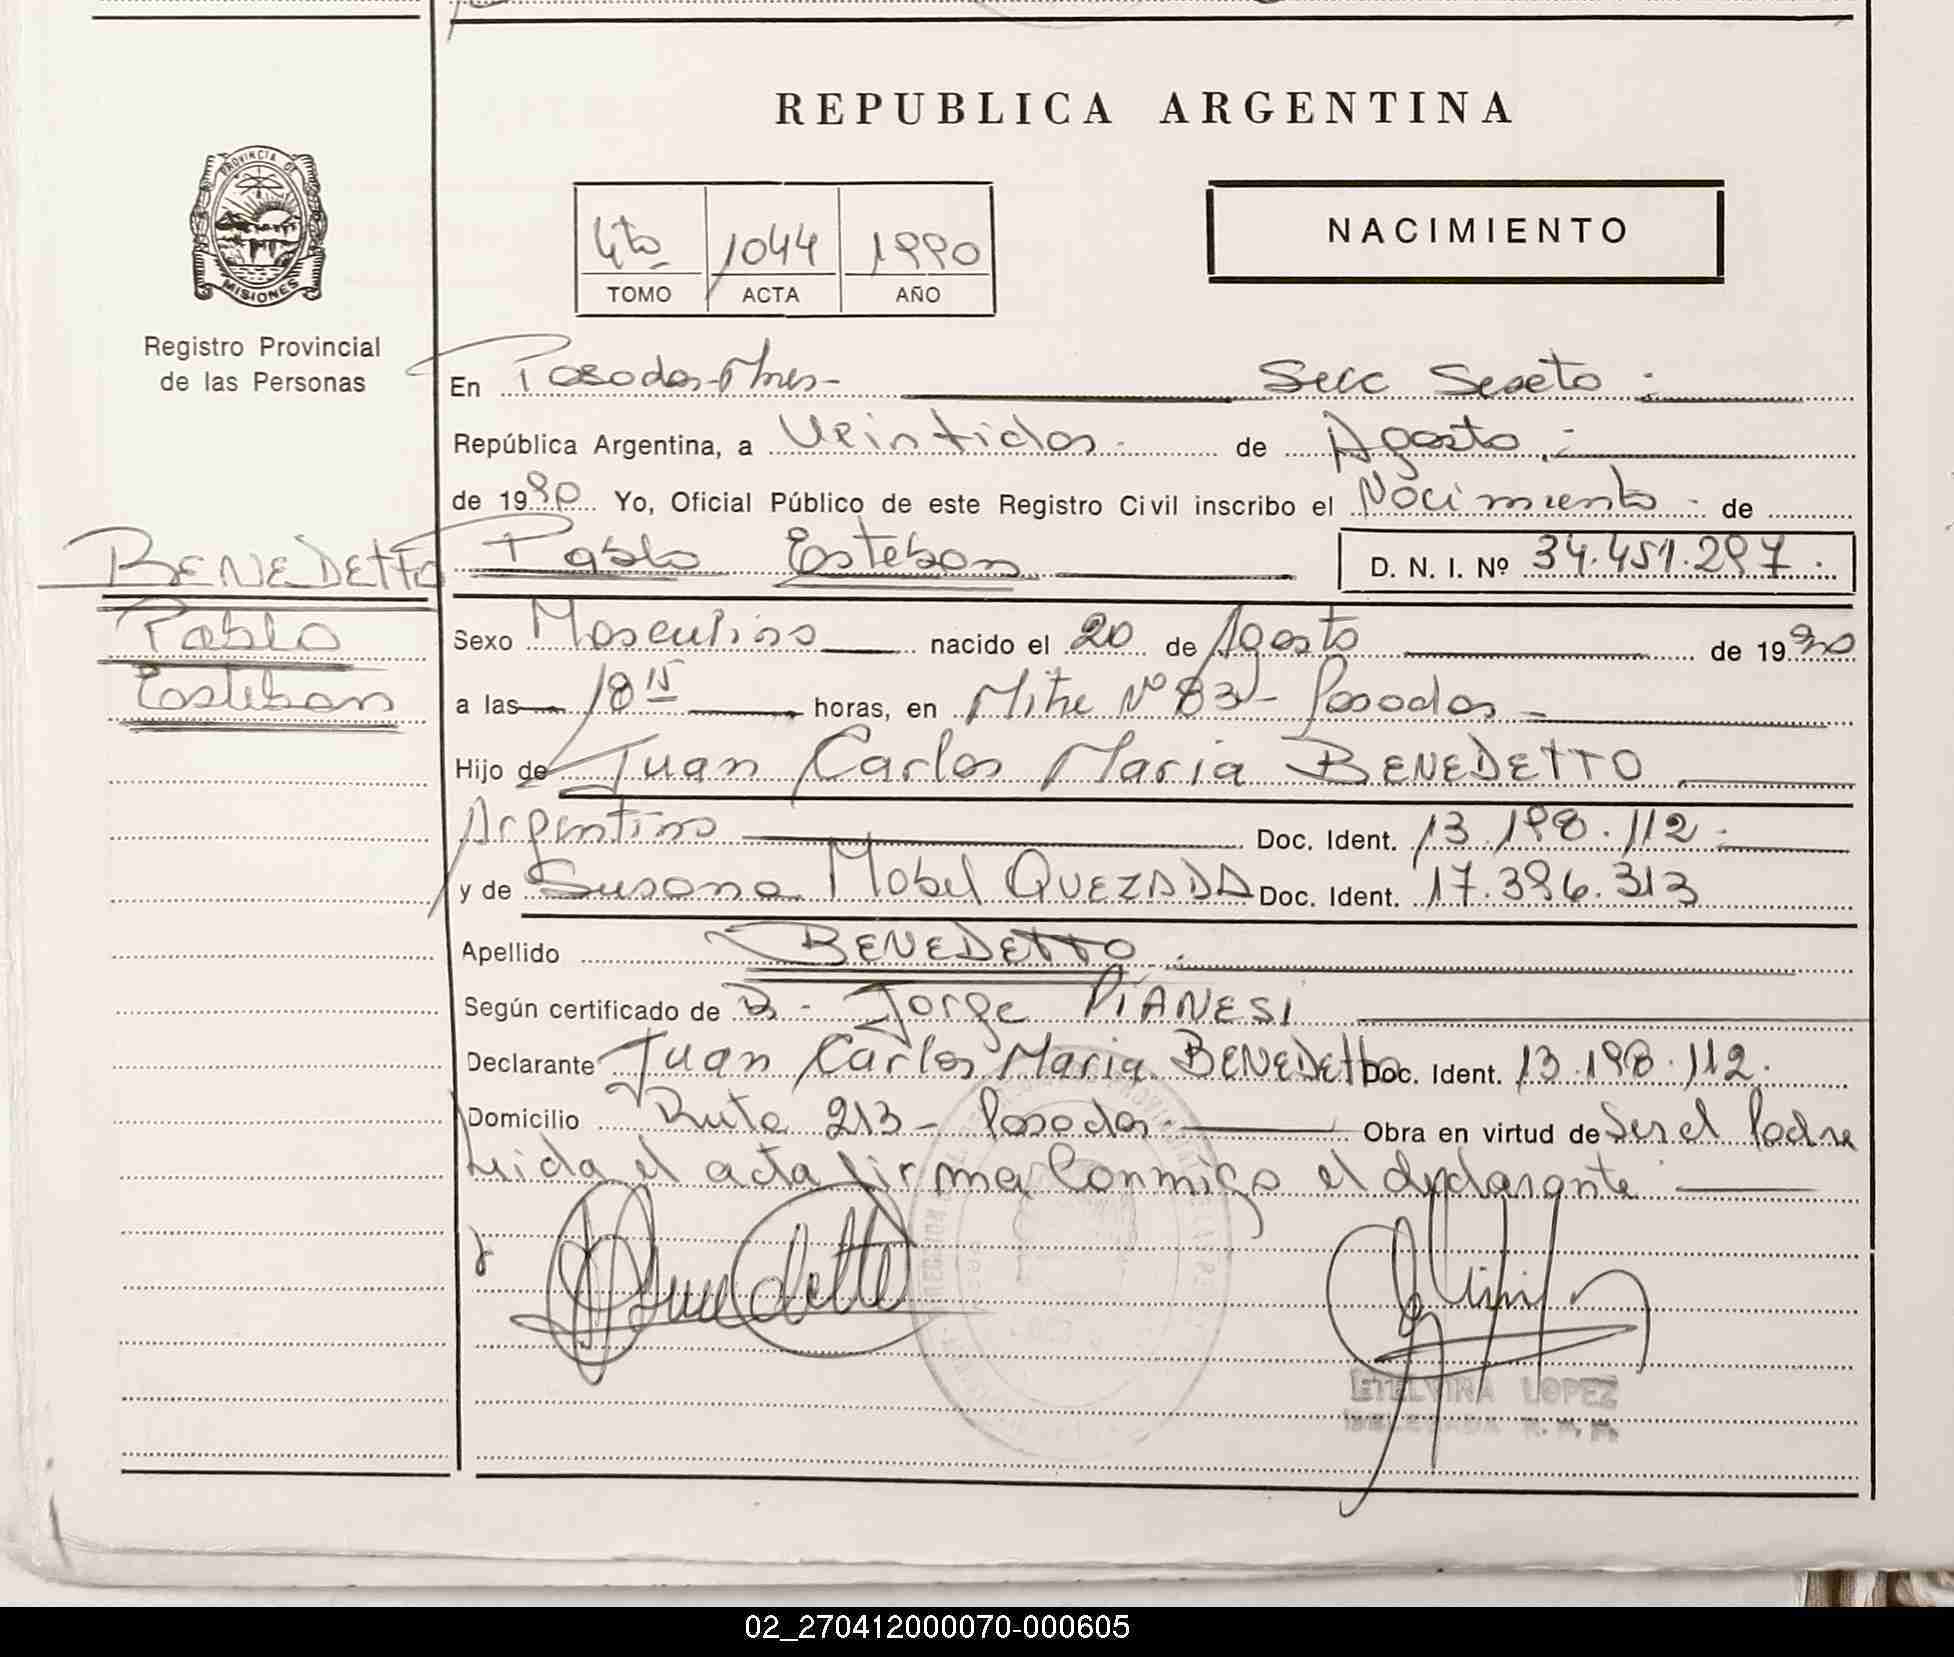 REPUBLICA ARGENTINA
PROVINCIA DE
MISIONES
Registro Provincial
de las Personas
4to 1044 1990
TOMO ACTA AÑO
NACIMIENTO
En Posadas-Mnes- Secc Sexto
República Argentina, a Veintidos de Agosto
de 1990 Yo, Oficial Público de este Registro Civil inscribo el Nacimiento de
BENEDETTO
Pablo
Esteban
Pablo Esteban D. N. I. Nº 34.451.297
Sexo Masculino nacido el 20 de Agosto de 1990
a las 18 15 horas, en Mitre Nº 83 - Posadas -
Hijo de Juan Carlos Maria BENEDETTO
Argentino Doc. Ident. 13.198.112
y de Susana Mabel QUEZADA Doc. Ident. 17.396.313
Apellido BENEDETTO
Según certificado de D. - Jorge PIANESI
Declarante Juan Carlos Maria BENEDETTO Doc. Ident. 13.198.112.
Domicilio Ruta 213 - Posadas - Obra en virtud de Ser el Padre
Leida el acta firma conmigo el declarante
ETELVINA LOPEZ
DELEGADA R. P. P.
02_270412000070-000605